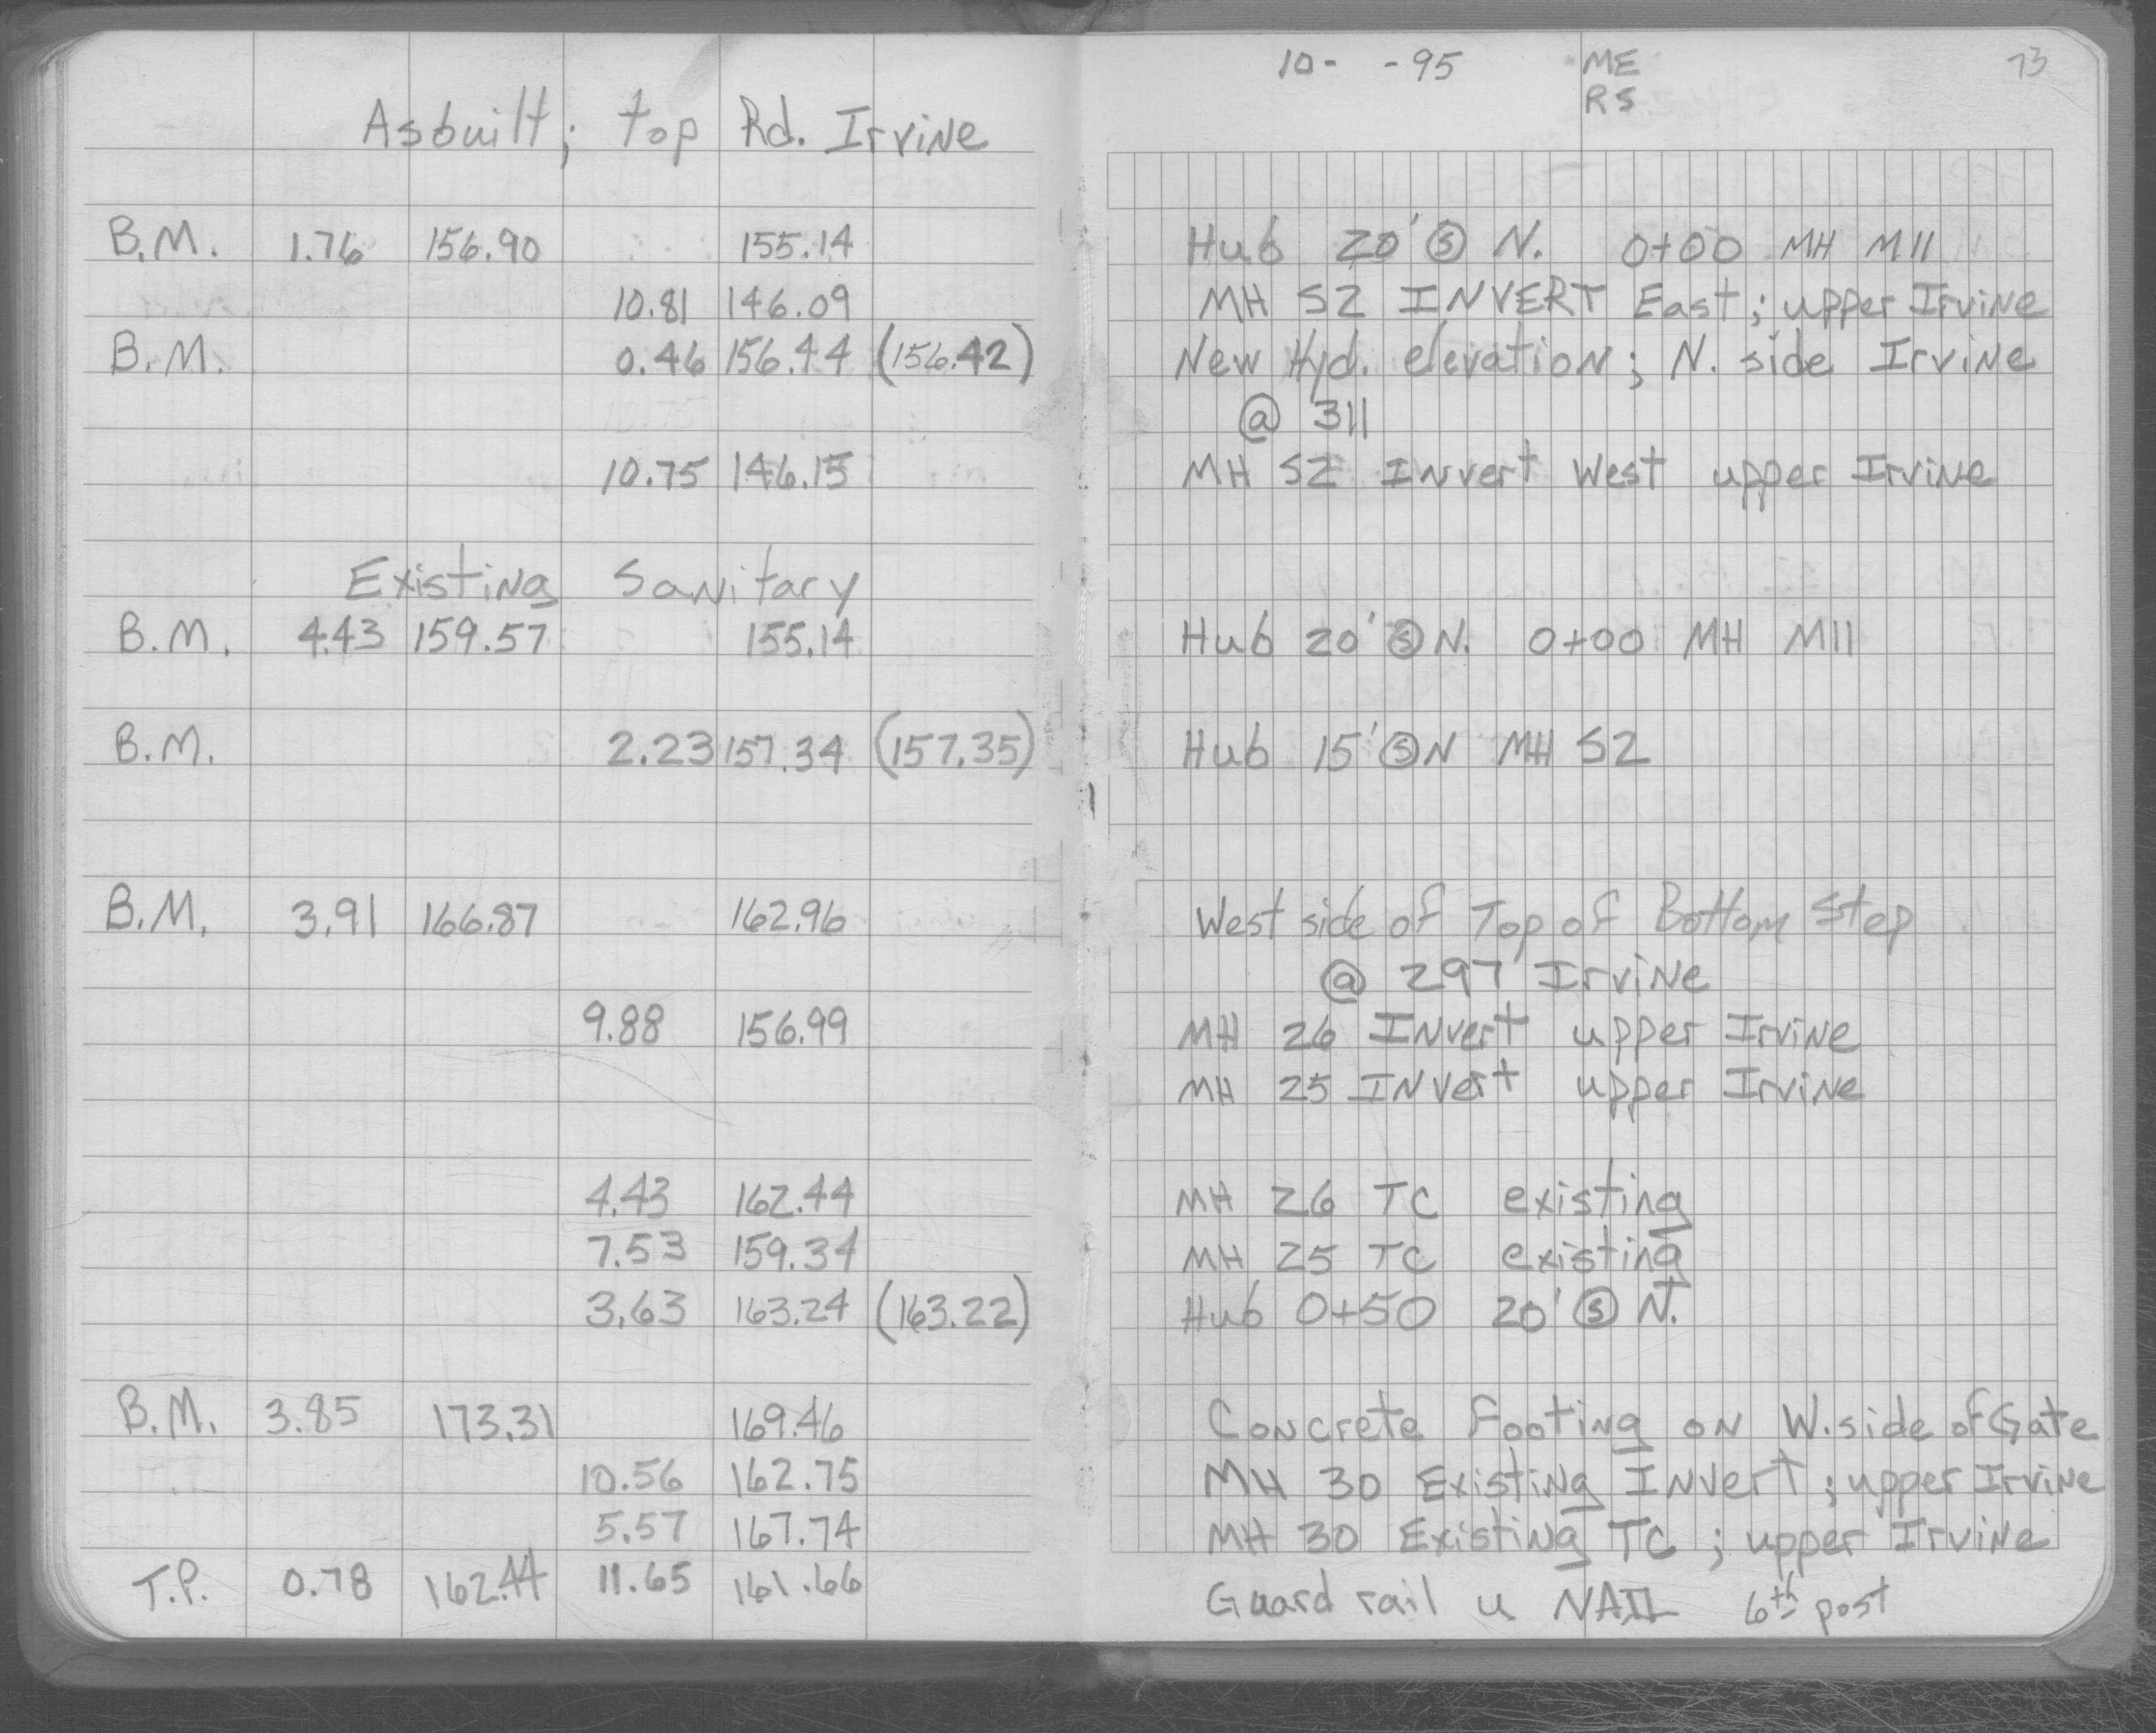 10-   -95   ME   73
RS
Asbuilt; top Rd. Irvine
B.M. 1.76 156.90 155.14 Hub 20' Ⓢ N. 0+00 MH M11
10.81 146.09 MH S2 INVERT East; upper Irvine
B.M. 0.46 156.44 (156.42) New Hyd. elevation; N. side Irvine
@ 311
10.75 146.15 MH S2 Invert West upper Irvine
Existing Sanitary
B.M. 4.43 159.57 155.14 Hub 20' Ⓢ N. 0+00 MH M11
B.M. 2.23 157.34 (157.35) Hub 15' Ⓢ N MH S2
B.M. 3.91 166.87 162.96 West side of Top of Bottom Step
@ 297 Irvine
9.88 156.99 MH 26 Invert upper Irvine
MH 25 Invert upper Irvine
4.43 162.44 MH 26 TC existing
7.53 159.34 MH 25 TC existing
3.63 163.24 (163.22) Hub 0+50 20' Ⓢ N.
B.M. 3.85 173.31 169.46 Concrete Footing on W. side of Gate
10.56 162.75 MH 30 Existing Invert; upper Irvine
5.57 167.74 MH 30 Existing TC; upper Irvine
T.P. 0.78 162.44 11.65 161.66 Guard rail u NAIL 6th post